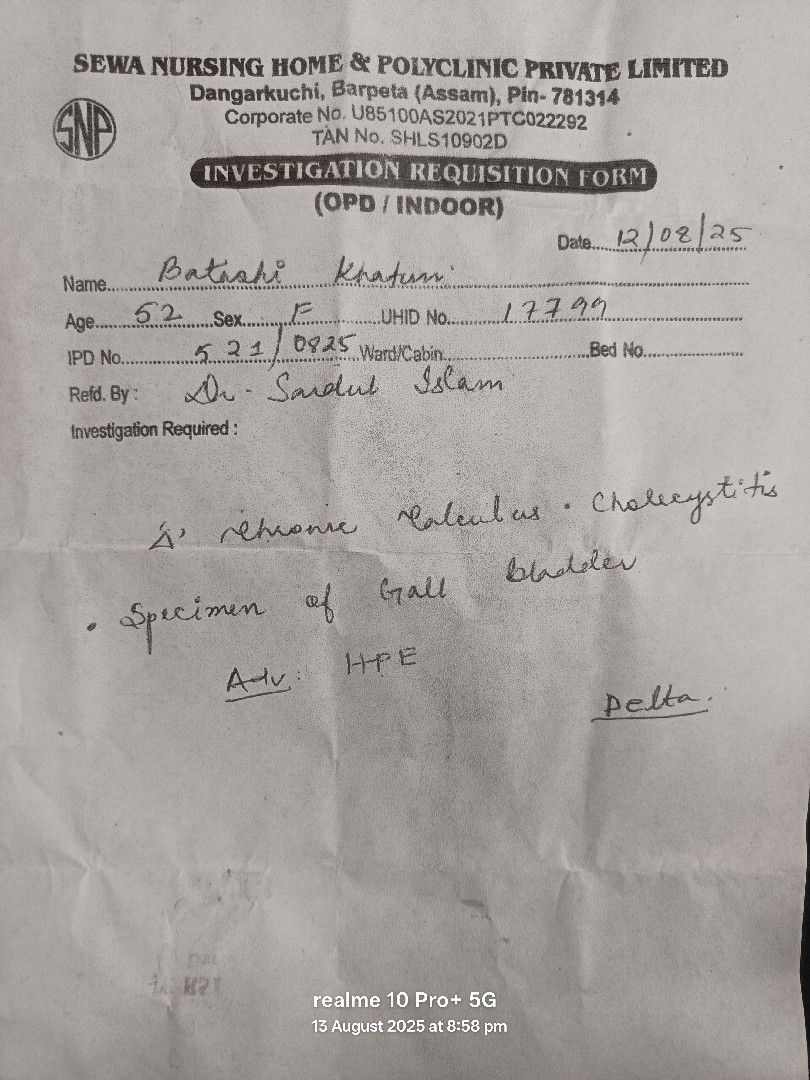 SEWA NURSING HOME & POLYCLINIC PRIVATE LIMITED
Dangarkuchi, Barpeta (Assam), Pin- 781314
SNP
Corporate No. U85100AS2021PTC022292
TAN No. SHLS10902D
INVESTIGATION REQUISITION FORM
(OPD / INDOOR)
Date.... 12/08/25
Name.... Batashi Khatun
Age.... 52 ....Sex.... F ....UHID No.... 17799
IPD No.... 521/0825 Ward/Cabin....Bed No....
Refd. By : Dr. Saidul Islam
Investigation Required :
Δ' Chronic Calculus Cholecystitis
• Specimen of Gall bladder
Adv: HPE
Delta.
realme 10 Pro+ 5G
13 August 2025 at 8:58 pm